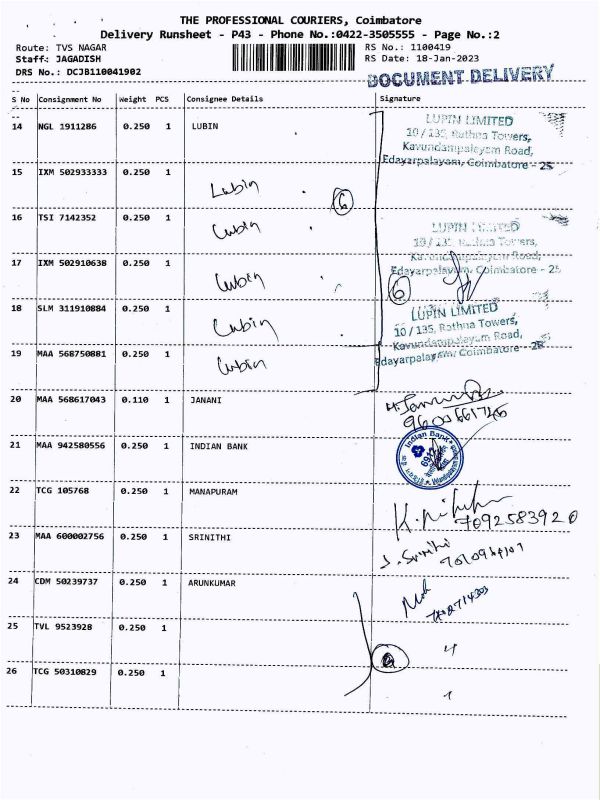 THE PROFESSIONAL COURIERS, Coimbatore
Delivery Runsheet - P43 - Phone No.:0422-3505555 - Page No.:2
Route: TVS NAGAR RS No.: 1100419
Staff: JAGADISH RS Date: 18-Jan-2023
DRS No.: DCJB110041902
DOCUMENT DELIVERY
S No Consignment No Weight PCS Consignee Details Signature
LUPIN LIMITED
14 NGL 1911286 0.250 1 LUBIN
10 / 135, Rathna Towers,
Kavundampalayam Road,
Edayarpalayam, Coimbatore - 25
15 IXM 502933333 0.250 1
Lubin 6
16 TSI 7142352 0.250 1
Lubin
LUPIN LIMITED
10 / 135, Rathna Towers,
Kavundampalayam Road,
17 IXM 502910638 0.250 1
Edayarpalayam, Coimbatore - 25
Lubin 6
18 SLM 311910884 0.250 1
LUPIN LIMITED
Lubin
10 / 135, Rathna Towers,
Kavundampalayam Road,
19 MAA 568750881 0.250 1
Edayarpalayam, Coimbatore - 25
Lubin
20 MAA 568617043 0.110 1 JANANI
21 MAA 942580556 0.250 1 INDIAN BANK
Indian Bank
22 TCG 105768 0.250 1 MANAPURAM
7092583920
23 MAA 600002756 0.250 1 SRINITHI
J. Srinithi
24 CDM 50239737 0.250 1 ARUNKUMAR
25 TVL 9523928 0.250 1
26 TCG 50310829 0.250 1